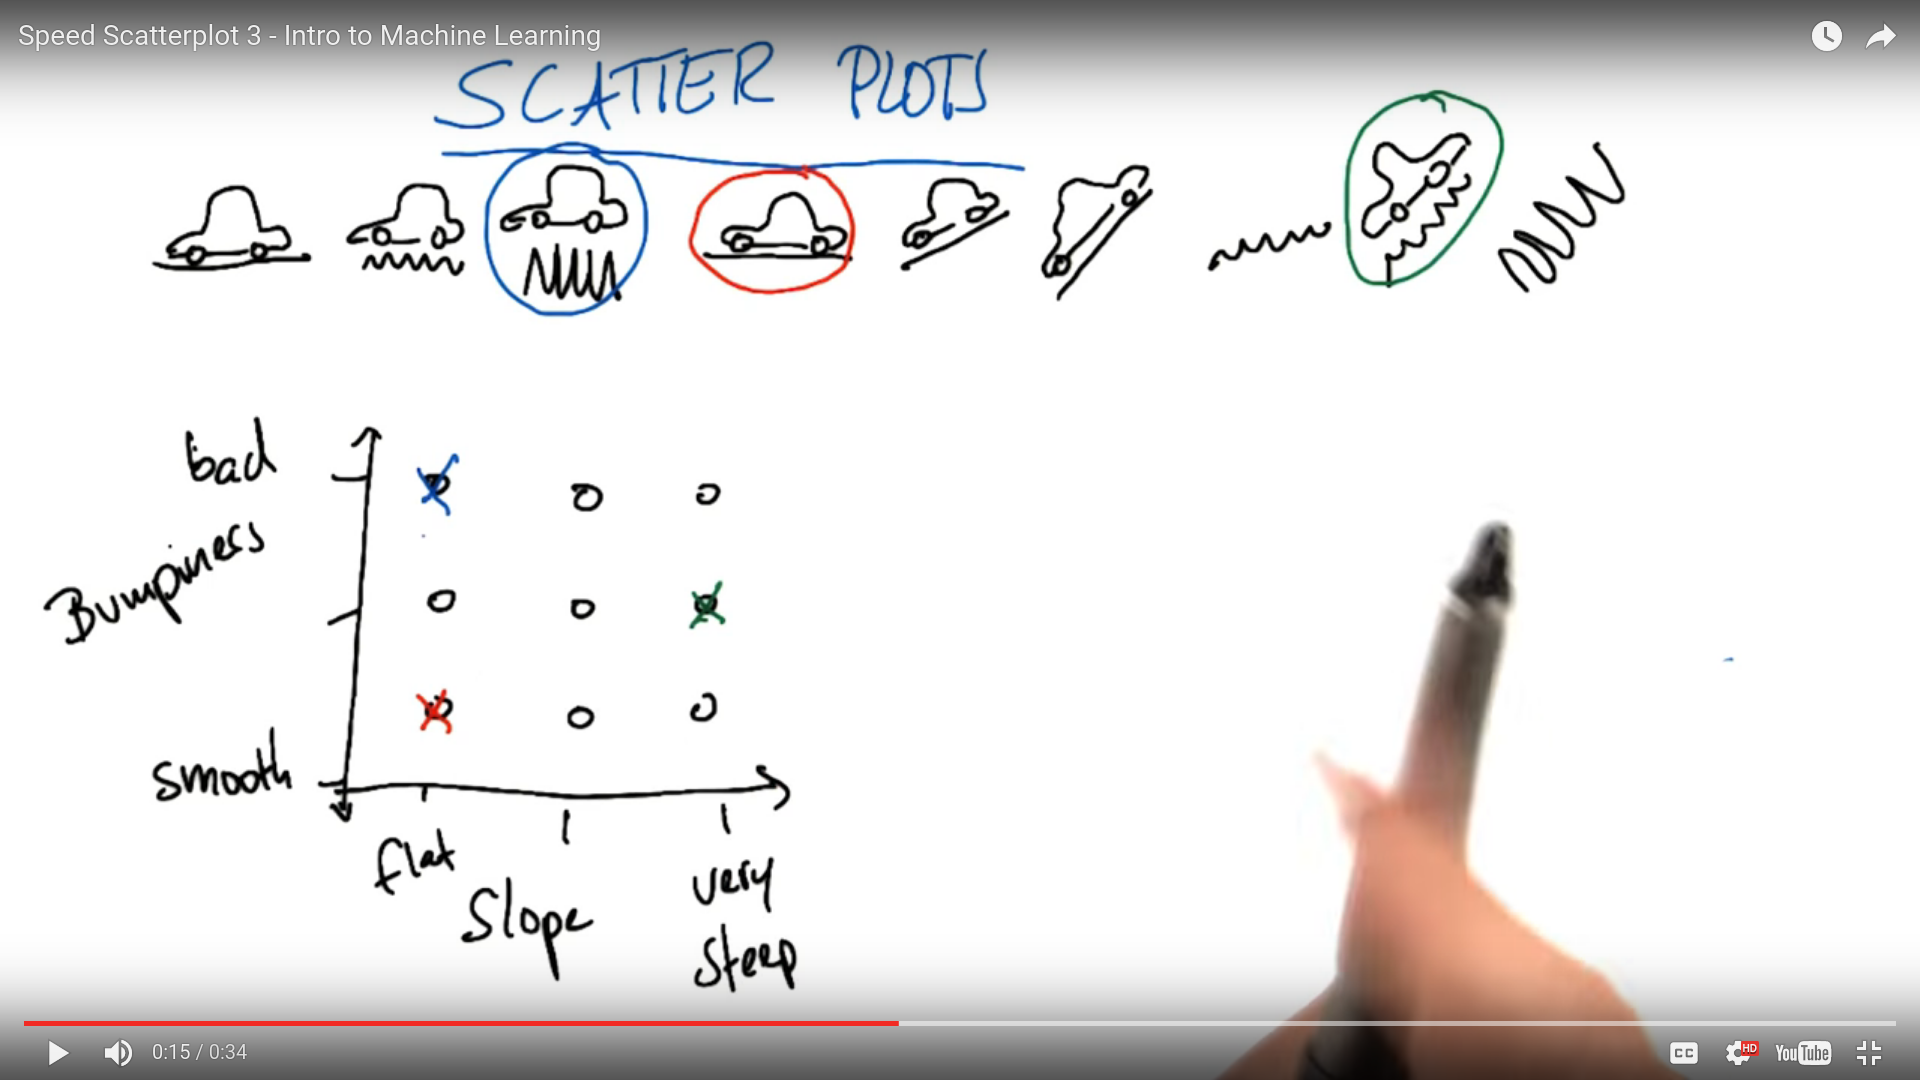 Speed Scatterplot 3 - Intro to Machine Learning
SCATTER PLOTS
bad
Bumpiness
smooth
flat
Slope
very
steep
0:15 / 0:34
CC
HD
YouTube